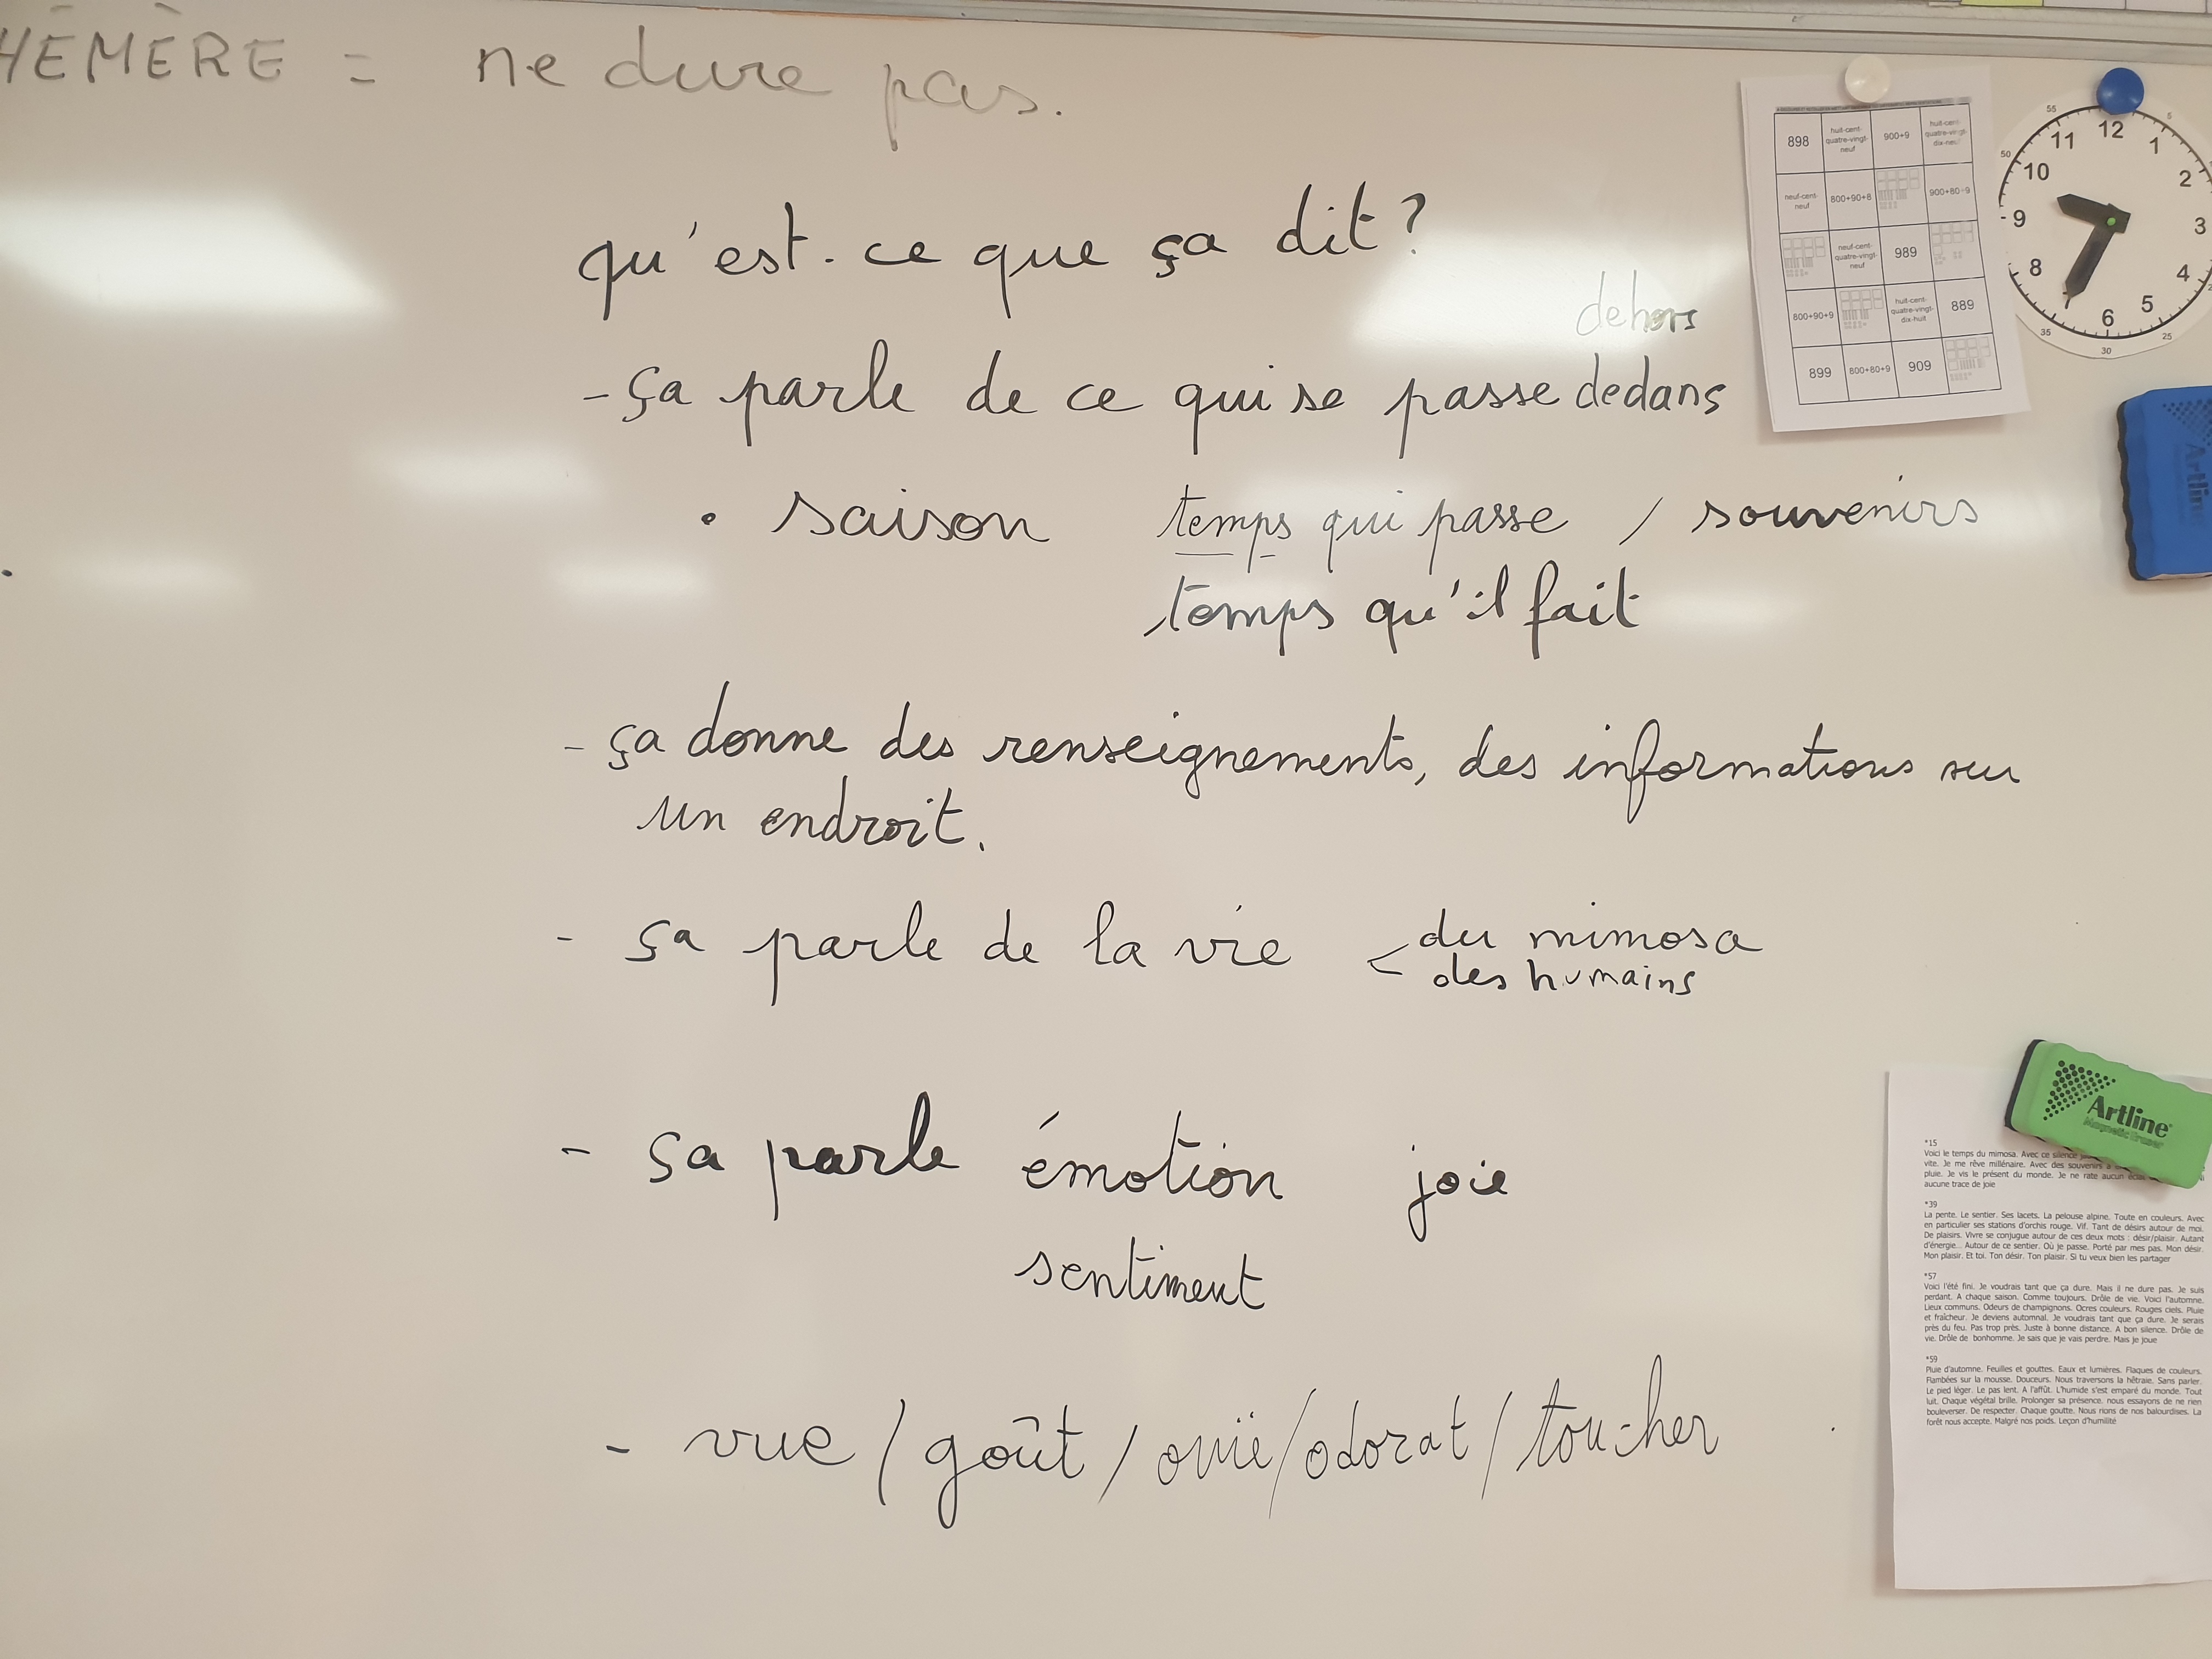 HÉMÈRE = ne dure pas.
qu'est-ce que ça dit ?
dehors
- ça parle de ce qui se passe dedans
• saison temps qui passe / souvenirs
temps qu'il fait
- ça donne des renseignements, des informations sur
un endroit.
- ça parle de la vie < du mimosa
des humains
- sa parle émotion joie
sentiment
- vue / goût / ouïe / odorat / toucher
898 huit-cent-quatre-vingt-neuf 900+9
neuf-cent-neuf 800+90+8 900+80+9
neuf-cent-quatre-vingt-neuf 989
800+90+9 huit-cent-quatre-vingt-dix-huit 889
899 800+80+9 909
55 5
11 12 1
50 10 2
9 3
8 4
7 6 5
35 30 25
Artline
Artline
Magnetic Eraser
*15
Voici le temps du mimosa. Avec ce silence
vite. Je me rêve millénaire. Avec des souvenirs à
pluie. Je vis le présent du monde. Je ne rate aucun
aucune trace de joie
*39
La pente. Le sentier. Ses lacets. La pelouse alpine. Toute en couleurs. Avec
en particulier ses stations d'orchis rouge. Vif. Tant de désirs autour de moi.
De plaisirs. Vivre se conjugue autour de ces deux mots : désir/plaisir. Autant
d'énergie... Autour de ce sentier. Où je passe. Porté par mes pas. Mon désir.
Mon plaisir. Et toi. Ton désir. Ton plaisir. Si tu veux bien les partager
*57
Voici l'été fini. Je voudrais tant que ça dure. Mais il ne dure pas. Je suis
perdant. A chaque saison. Comme toujours. Drôle de vie. Voici l'automne.
Lieux communs. Odeurs de champignons. Ocres couleurs. Rouges ciels. Pluie
et fraîcheur. Je deviens automnal. Je voudrais tant que ça dure. Je serais
près du feu. Pas trop près. Juste à bonne distance. A bon silence. Drôle de
vie. Drôle de bonhomme. Je sais que je vais perdre. Mais je joue
*59
Pluie d'automne. Feuilles et gouttes. Eaux et lumières. Flaques de couleurs.
Flambées sur la mousse. Douceurs. Nous traversons la hêtraie. Sans parler.
Le pied léger. Le pas lent. A l'affût. L'humide s'est emparé du monde. Tout
luit. Chaque végétal brille. Prolonger sa présence. nous essayons de ne rien
bouleverser. De respecter. Chaque goutte. Nous rions de nos balourdises. La
forêt nous accepte. Malgré nos poids. Leçon d'humilité